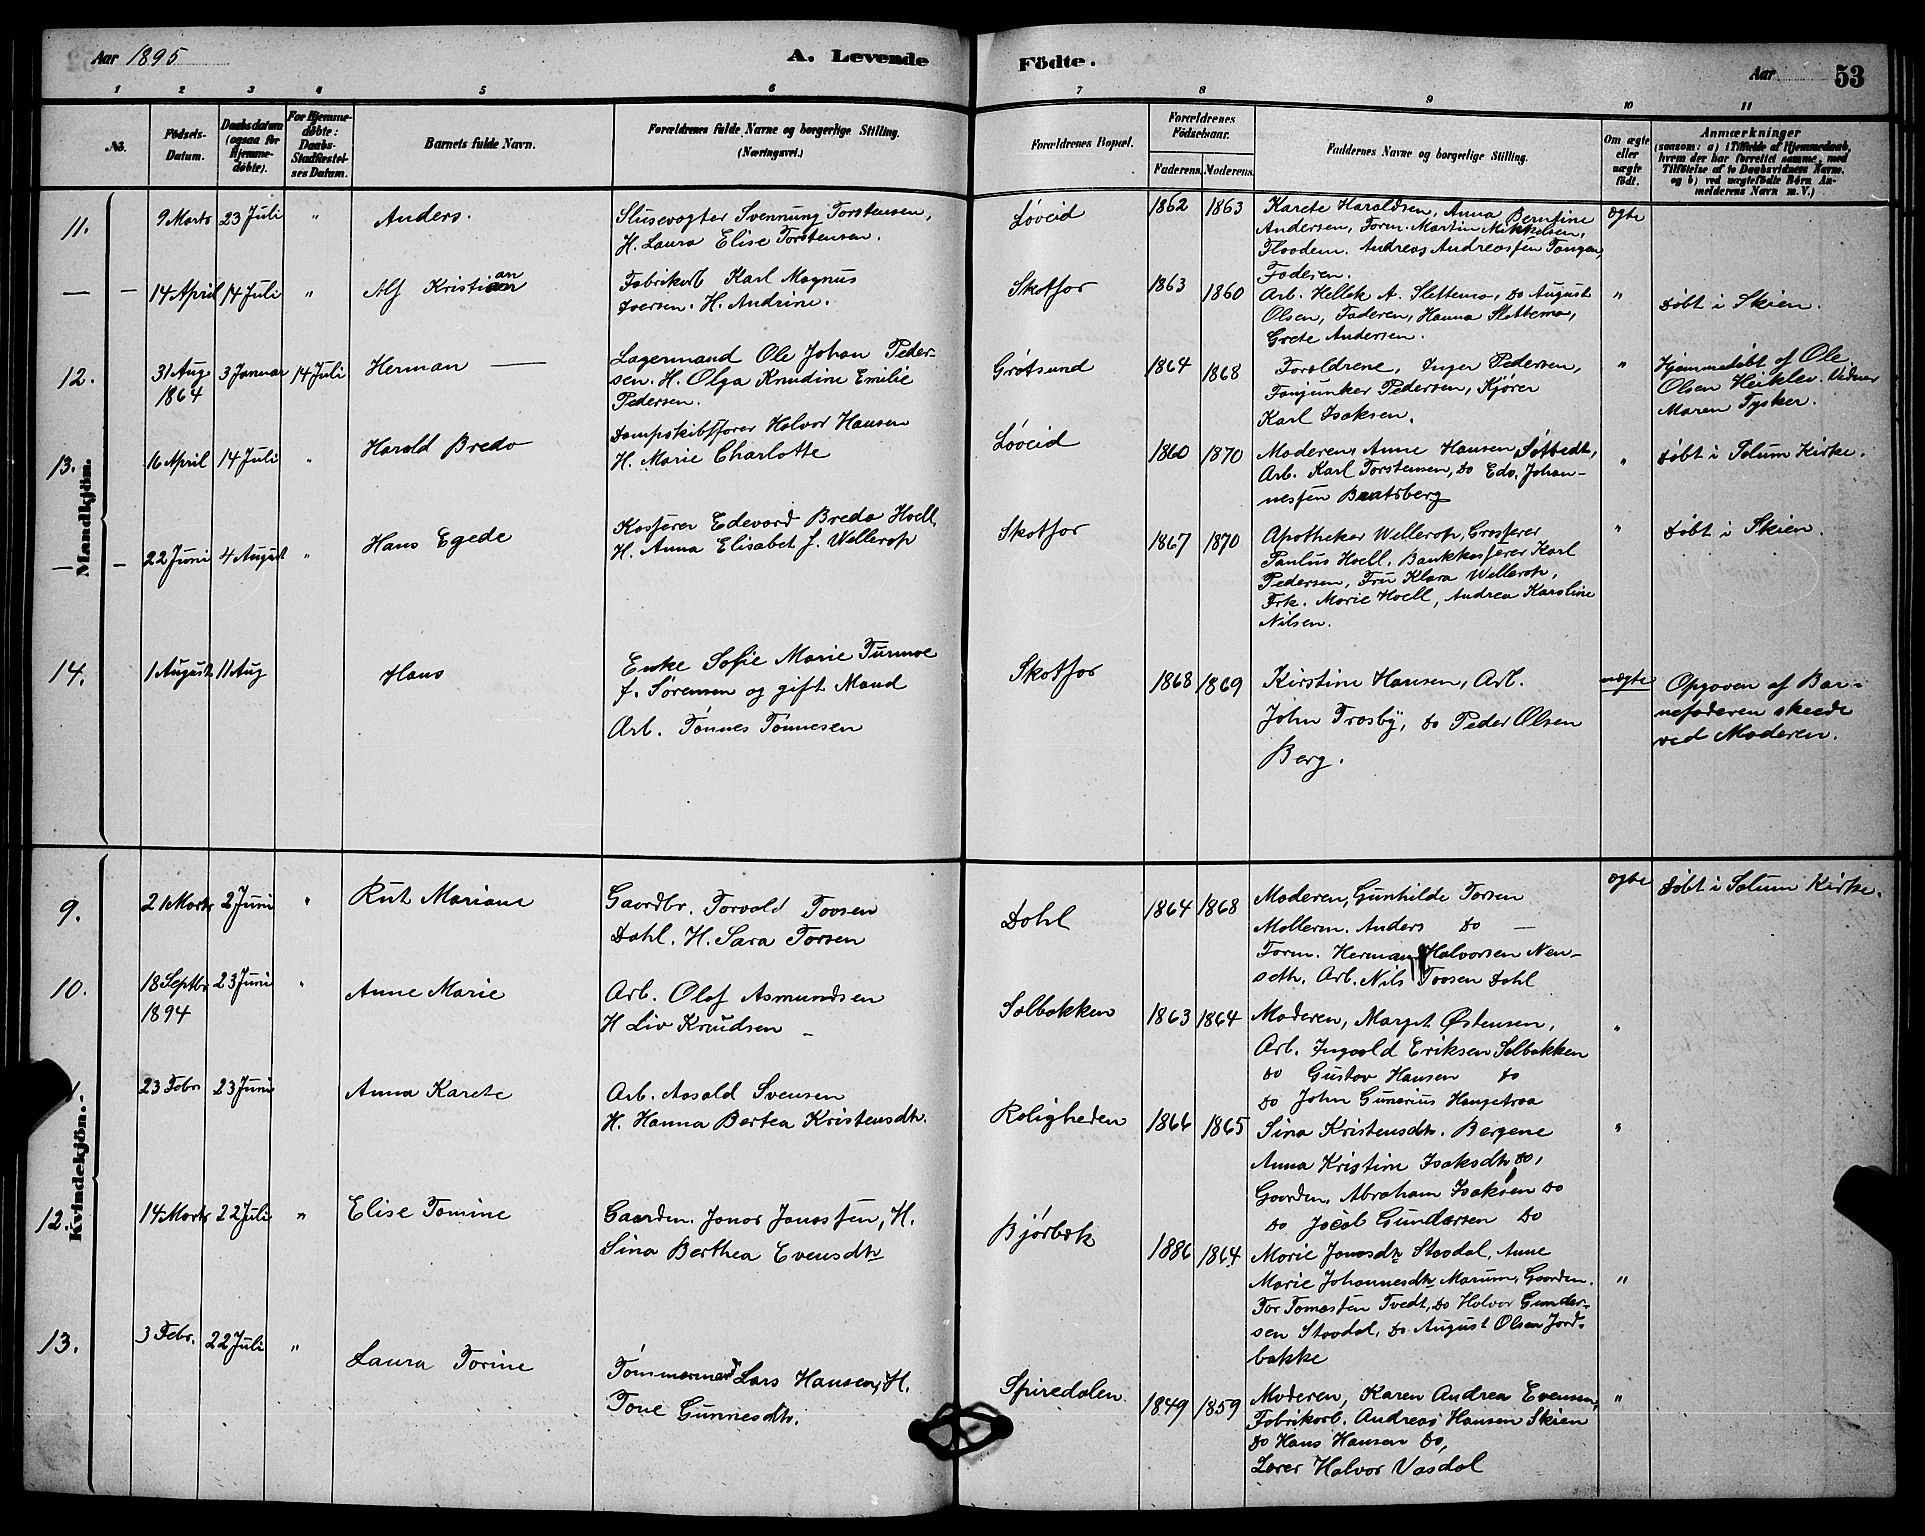 Aar 1895
A. Levende Födte.
Aar 53
1 2 3 4 5 6 7 8 9 10 11
No.
Födsels-Datum.
Daabsdatum (ogsaa for Hjemme-døbte).
For Hjemme-døbte: Daabs-Stadfæstel-ses Datum.
Barnets fulde Navn.
Forældrenes fulde Navne og borgerlige Stilling. (Næringsvei.)
Forældrenes Bopæl.
Forældrenes Fødselsaar.
Faderens. Moderens.
Faddernes Navne og borgerlige Stilling.
Om ægte eller uægte født.
Anmærkninger
(saasom: a) i Tilfælde af Hjemmedaab, hvem der har forrettet samme, med Tilføielse af to Daabsvidners Navne. og b) ved uægtefødte Børn An-melderens Navn m. V.)
Mandkjön.
11. 9 Marts 23 Juli " Anders.
Slusevogter Svennung Torstensen,
H. Laura Elise Torstensen.
Løveid 1862 1863
Karete Haraldsen, Anna Berntine
Andersen, Form. Martin Mikkelsen,
Floodem. Andreas Andreassen Tangen,
Faderen.
ægte
— — 14 April 14 Juli " Alf Kristian
Fabrikarb Karl Magnus
Iversen. H. Andrine.
Skotfos 1863 1860
Arb. Hellek A. Slettemo, Do August
Olsen, Faderen, Hanna Slettemo,
Grete Andersen.
" Døbt i Skien.
12. 31 Aug 1864 3 Januar 14 Juli Herman —
Lagermand Ole Johan Peder-
sen. H. Olga Knudine Emilie
Pedersen.
Grøtsund 1864 1868
Foreldrene, Inger Pedersen,
Fanjunker Pedersen, Kjører
Karl Isaksen.
" Hjemmedøbt af Ole
Olsen Heiklev. Vidner
Maren Tysker.
13. 16 April 14 Juli " Harald Bredo
Dampskibsfører Halvor Hansen
H. Marie Charlotte
Løveid 1860 1870
Moderen, Anne Hansen,
Arb. Karl Torstensen, Do Edv. Johan-
nessen Bratsberg
" Døbt i Solum Kirke.
— — 22 Juni 4 August " Hans Egede
Kasserer Edevard Bredo Hoell,
H. Anna Elisabet f. Wellerop
Skotfos 1867 1870
Apotheker Wellerop, Grosserer
Paulus Hoell, Bankkasserer Karl
Pedersen, Fru Klara Wellerop,
Frk. Marie Hoell, Andrea Karoline
Nilsen.
" Døbt i Skien.
14. 1 August 11 Aug Hans
Enke Sofie Marie Turmoe
f. Sørensen og gift Mand
Arb. Tønnes Tønnesen
Skotfos 1868 1869
Kirstine Hansen, Arb.
John Trosby, Do Peder Olsen
Berg.
uægte
Opgaven af Bar-
nefaderen skeede
ved Moderen.
Kvindekjön.
9. 21 Marts 2 Juni " Rut Mariane
Gaardbr. Torvald Tovsen
Dahl. H. Sara Torsen
Dahl 1864 1868
Moderen, Gunhilde Torsen
Mollerm. Anders Do —
Form. Herman Halvorsen Nen-
seth, Arb. Nils Tovsen Dahl
ægte Døbt i Solum Kirke.
10. 18 Septbr 1894 23 Juni " Anne Marie
Arb. Olaf Asmundsen
H Liv Knudsen —
Solbakken 1863 1864
Moderen, Margit Østensen,
Arb. Ingvald Eriksen Solbakken
Do Gustav Hansen Do
Do John Gunerius Haugetraa
"
23 Febr 23 Juni Anna Karete
Arb. Aasald Svensen
H. Hanna Bertea Kristensdtr.
Roligheden 1866 1865
Sina Kristensdtr. Bergene
Anna Kristine Isaksdtr Do,
Gaarden. Abraham Isaksen Do
Do Jacob Gundersen Do
"
12. 14 Marts 22 Juli " Elise Tomine
Gaarden. Jonas Jonassen, H.
Sina Berthea Evensdtr
Bjørbæk 1886 1864
Marie Jonasdtr Stavdal, Anne
Marie Johannesdtr Marum, Gaarden.
Tor Tomassen Tvedt, Do Halvor Gunder-
sen Stavdal, Do August Olsen Jord-
bakke
"
13. 3 Febr. 22 Juli " Laura Torine
Tømmermand Lars Hansen, H.
Tone Gunnesdtr.
Spiredalen 1849 1859
Moderen, Karen Andrea Evensen,
Fabrikarb. Andreas Hansen Skien
Do Hans Hansen Do,
Lærer Halvor Vasdal
"